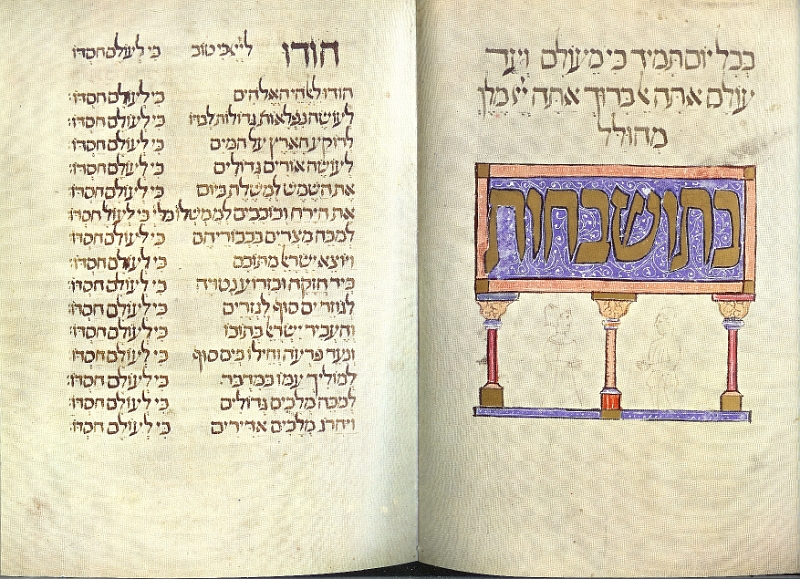 בכל יום תמיד כי מעולם ועד
עולם אתה אל ברוך אתה יי מלך
מהולל
בתושבחות
הודו ליי כי טוב כי לעולם חסדו
הודו לאלהי האלהים כי לעולם חסדו:
לעושה נפלאות גדולות לבדו כי לעולם חסדו:
לרוקע הארץ על המים כי לעולם חסדו:
לעושה אורים גדולים כי לעולם חסדו:
את השמש לממשלת ביום כי לעולם חסדו:
את הירח וכוכבים כי לעולם חסדו:
למכה מצרים בבכוריהם כי לעולם חסדו:
ויוצא ישראל מתוכם כי לעולם חסדו:
ביד חזקה ובזרוע נטויה כי לעולם חסדו:
לגוזר ים סוף לגזרים כי לעולם חסדו:
והעביר ישראל בתוכו כי לעולם חסדו:
ונער פרעה וחילו בים סוף כי לעולם חסדו:
למוליך עמו במדבר. כי לעולם חסדו:
למכה מלכים גדולים כי לעולם חסדו:
ויהרג מלכים אדירים כי לעולם חסדו: